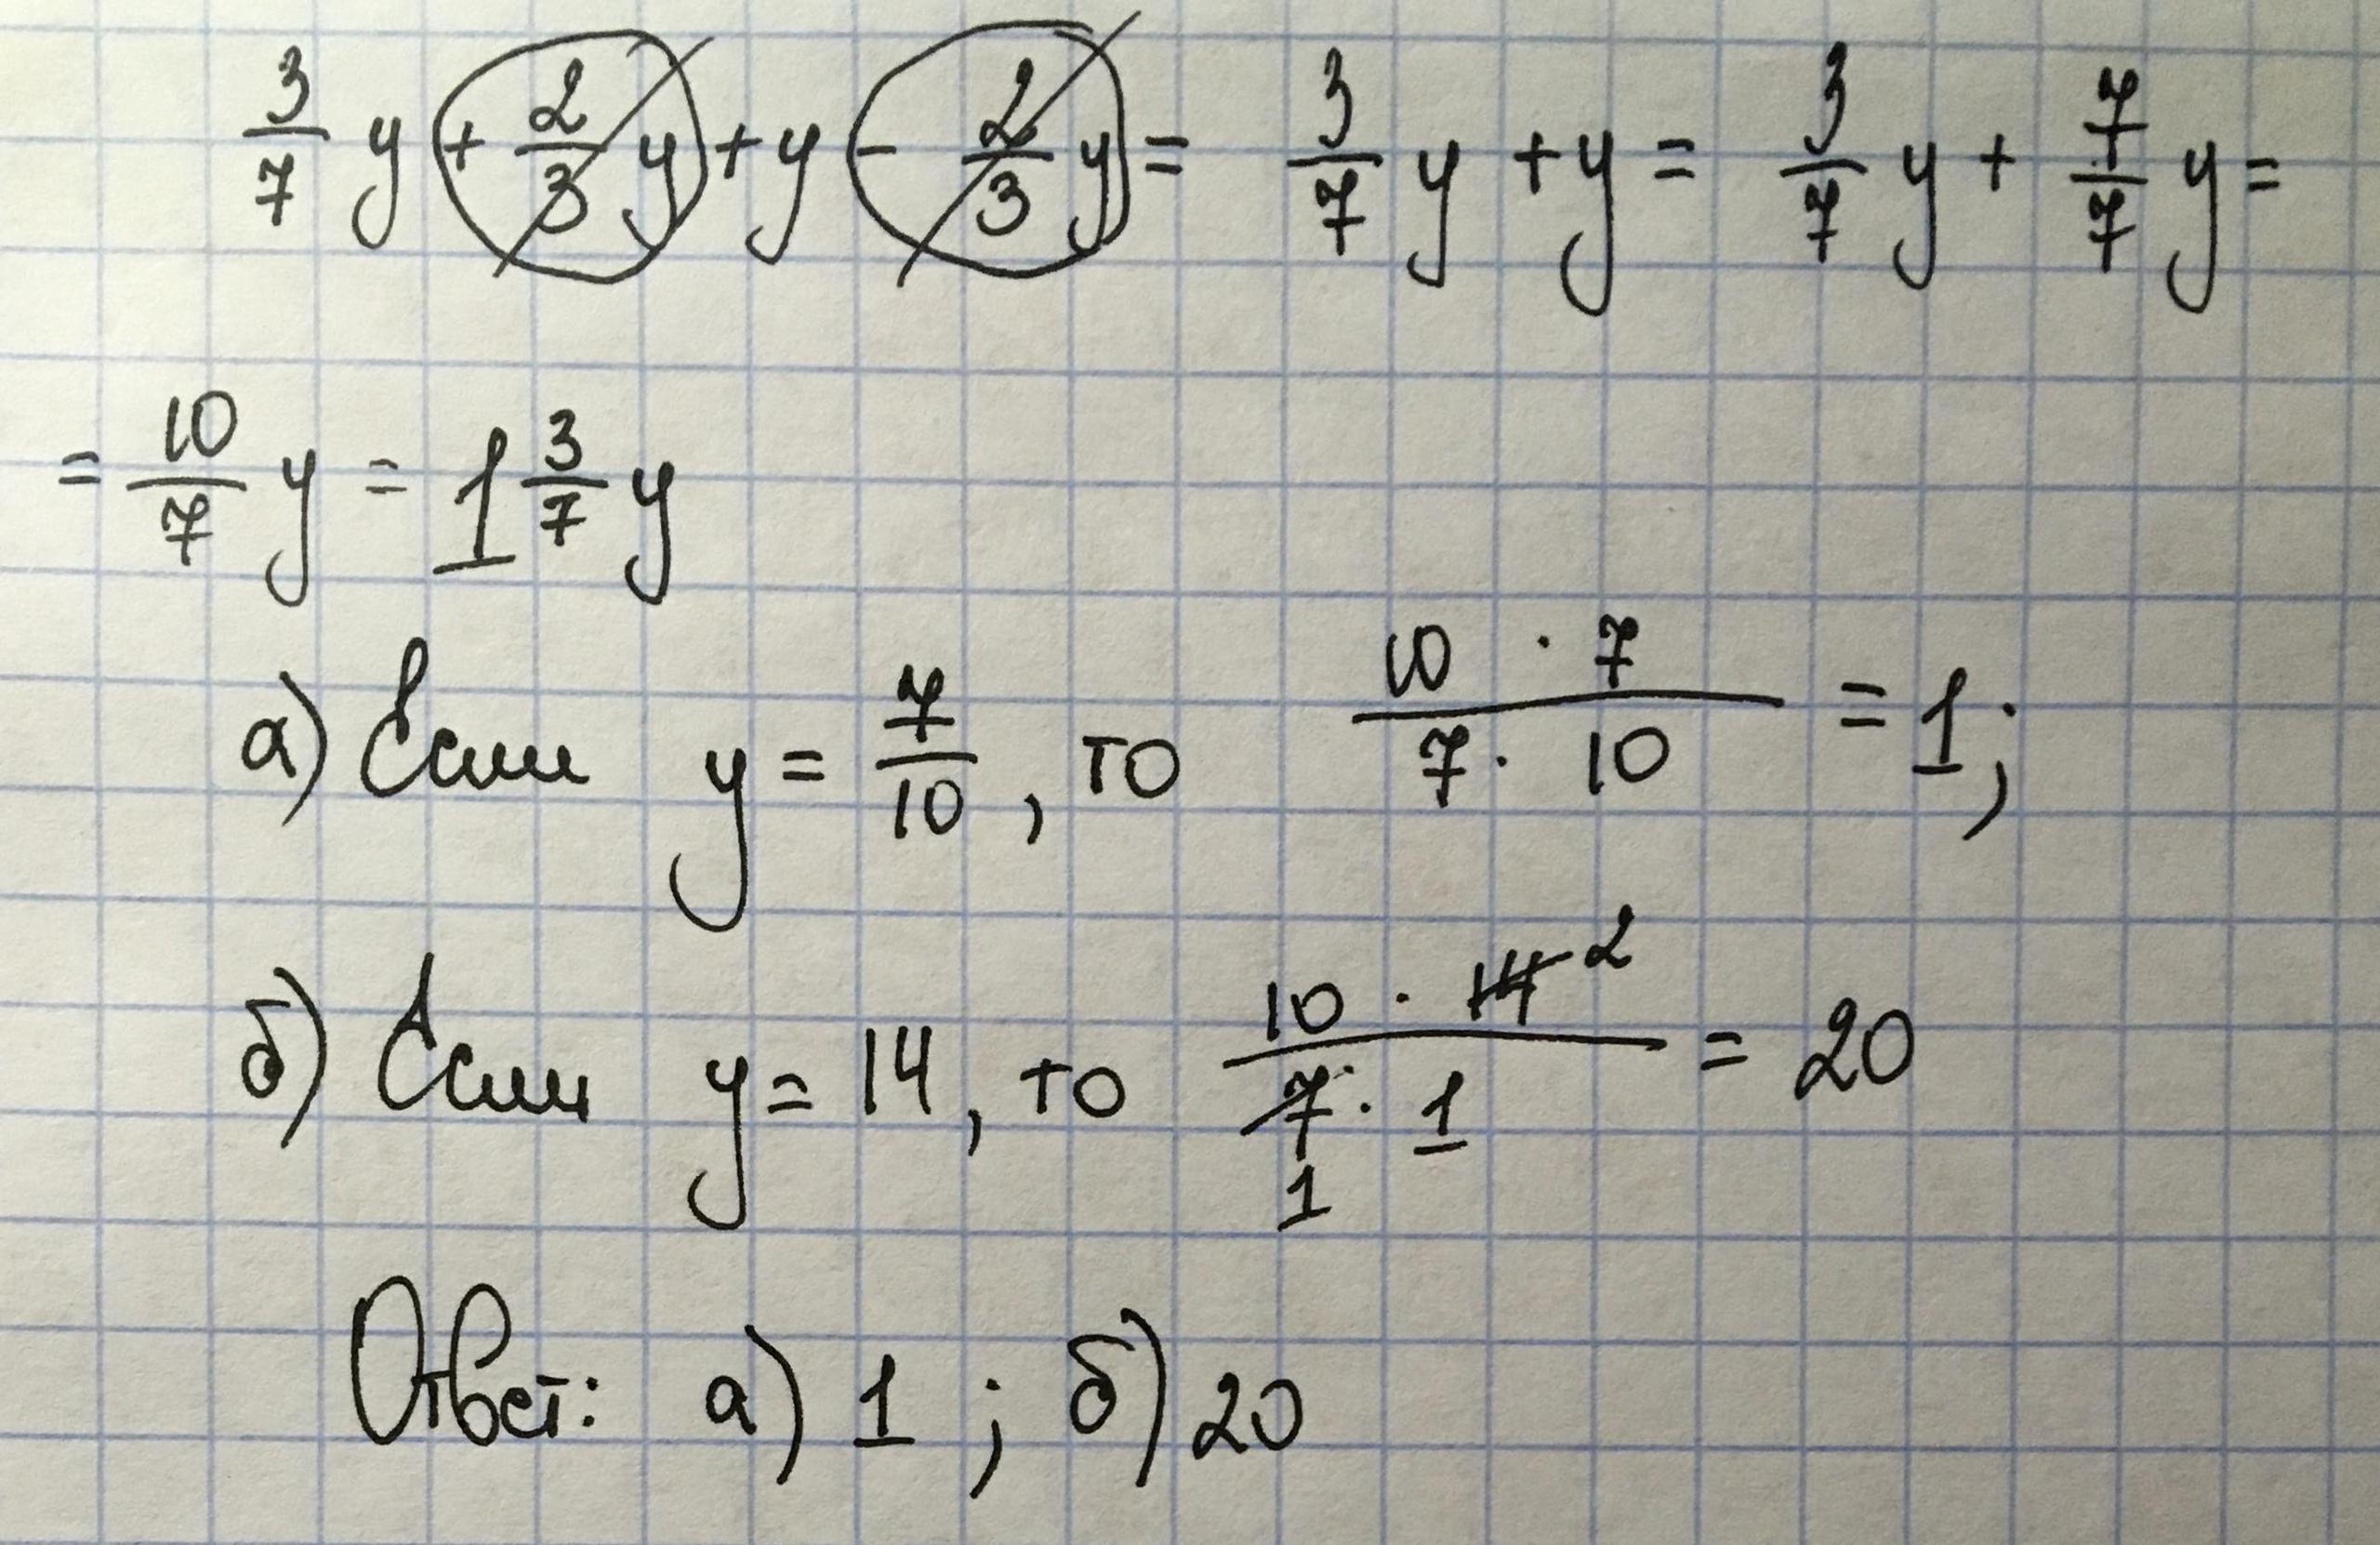 3/7 y + 2/3 y + y - 2/3 y = 3/7 y + y = 3/7 y + 7/7 y =
= 10/7 y = 1 3/7 y
а) Если y = 7/10, то (10 · 7)/(7 · 10) = 1;
б) Если y = 14, то (10 · 14 2)/(7 1 · 1) = 20
Ответ: а) 1 ; б) 20